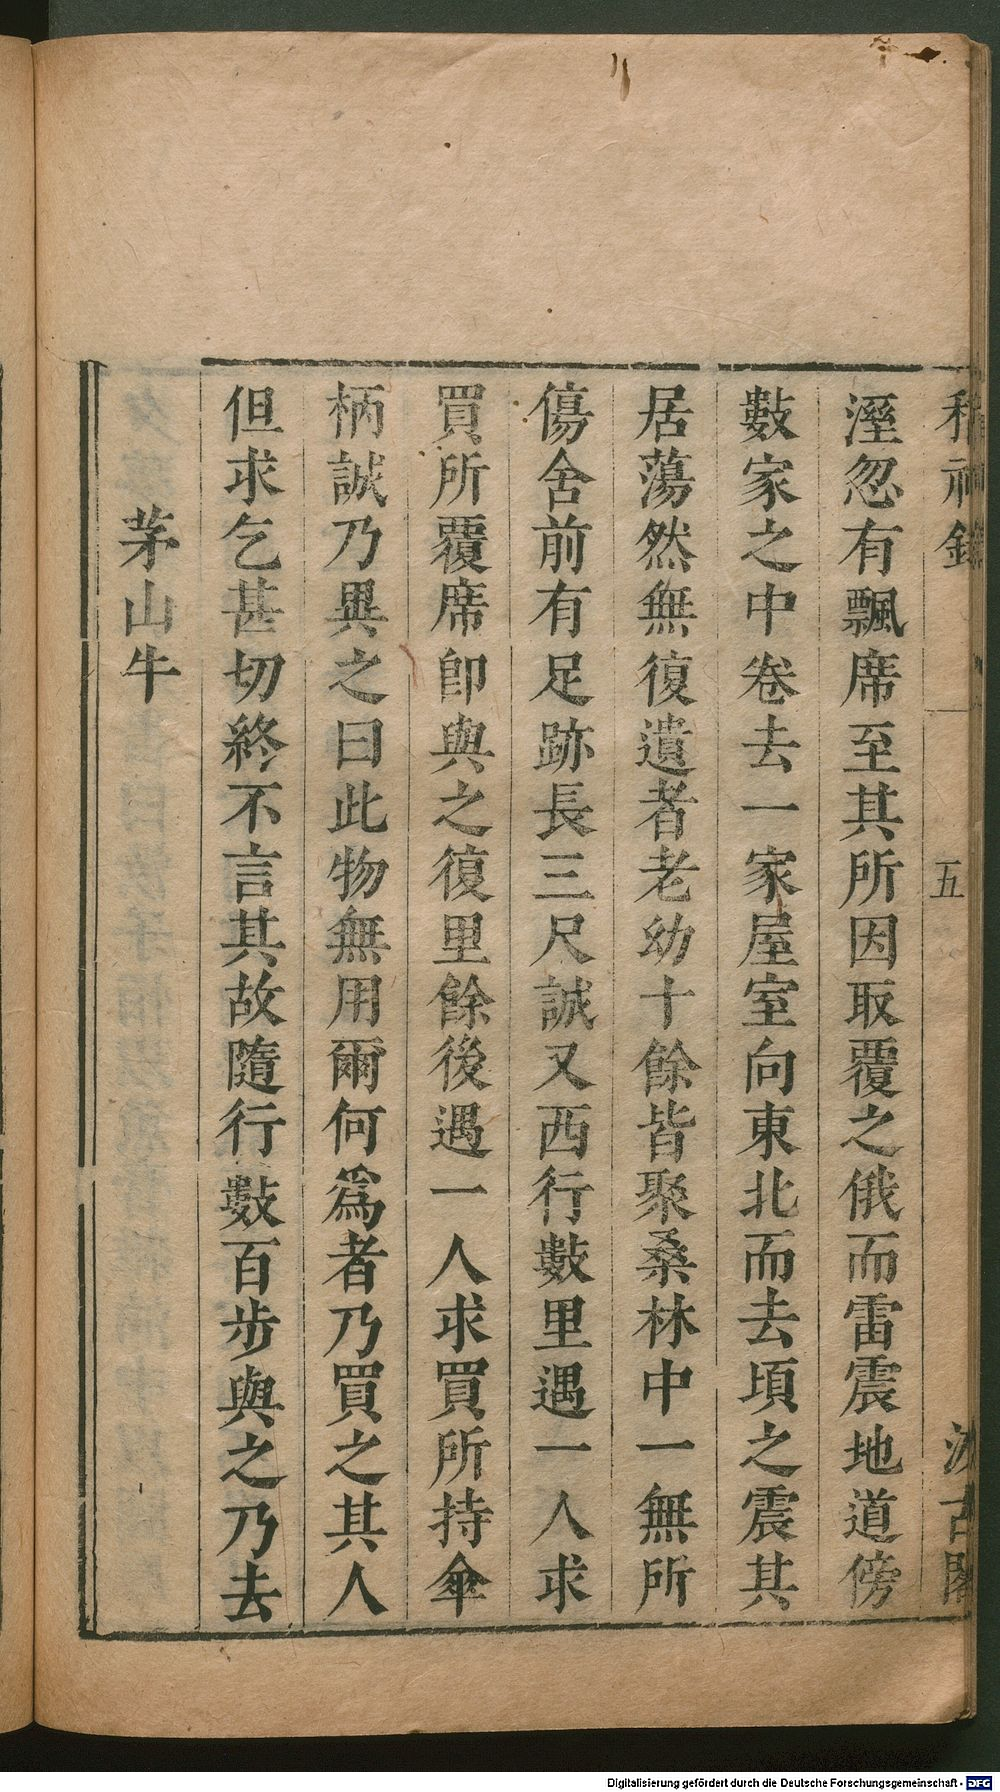 稽神錄
五
汲古閣
溼忽有飄席至其所因取覆之俄而雷震地道傍
數家之中卷去一家屋室向東北而去頃之震其
居蕩然無復遺者老幼十餘皆聚桑林中一無所
傷舍前有足跡長三尺誠又西行數里遇一人求
買所覆席卽與之復里餘後遇一人求買所持傘
柄誠乃異之曰此物無用爾何爲者乃買之其人
但求乞甚切終不言其故隨行數百步與之乃去
茅山牛
Digitalisierung gefördert durch die Deutsche Forschungsgemeinschaft - DFG